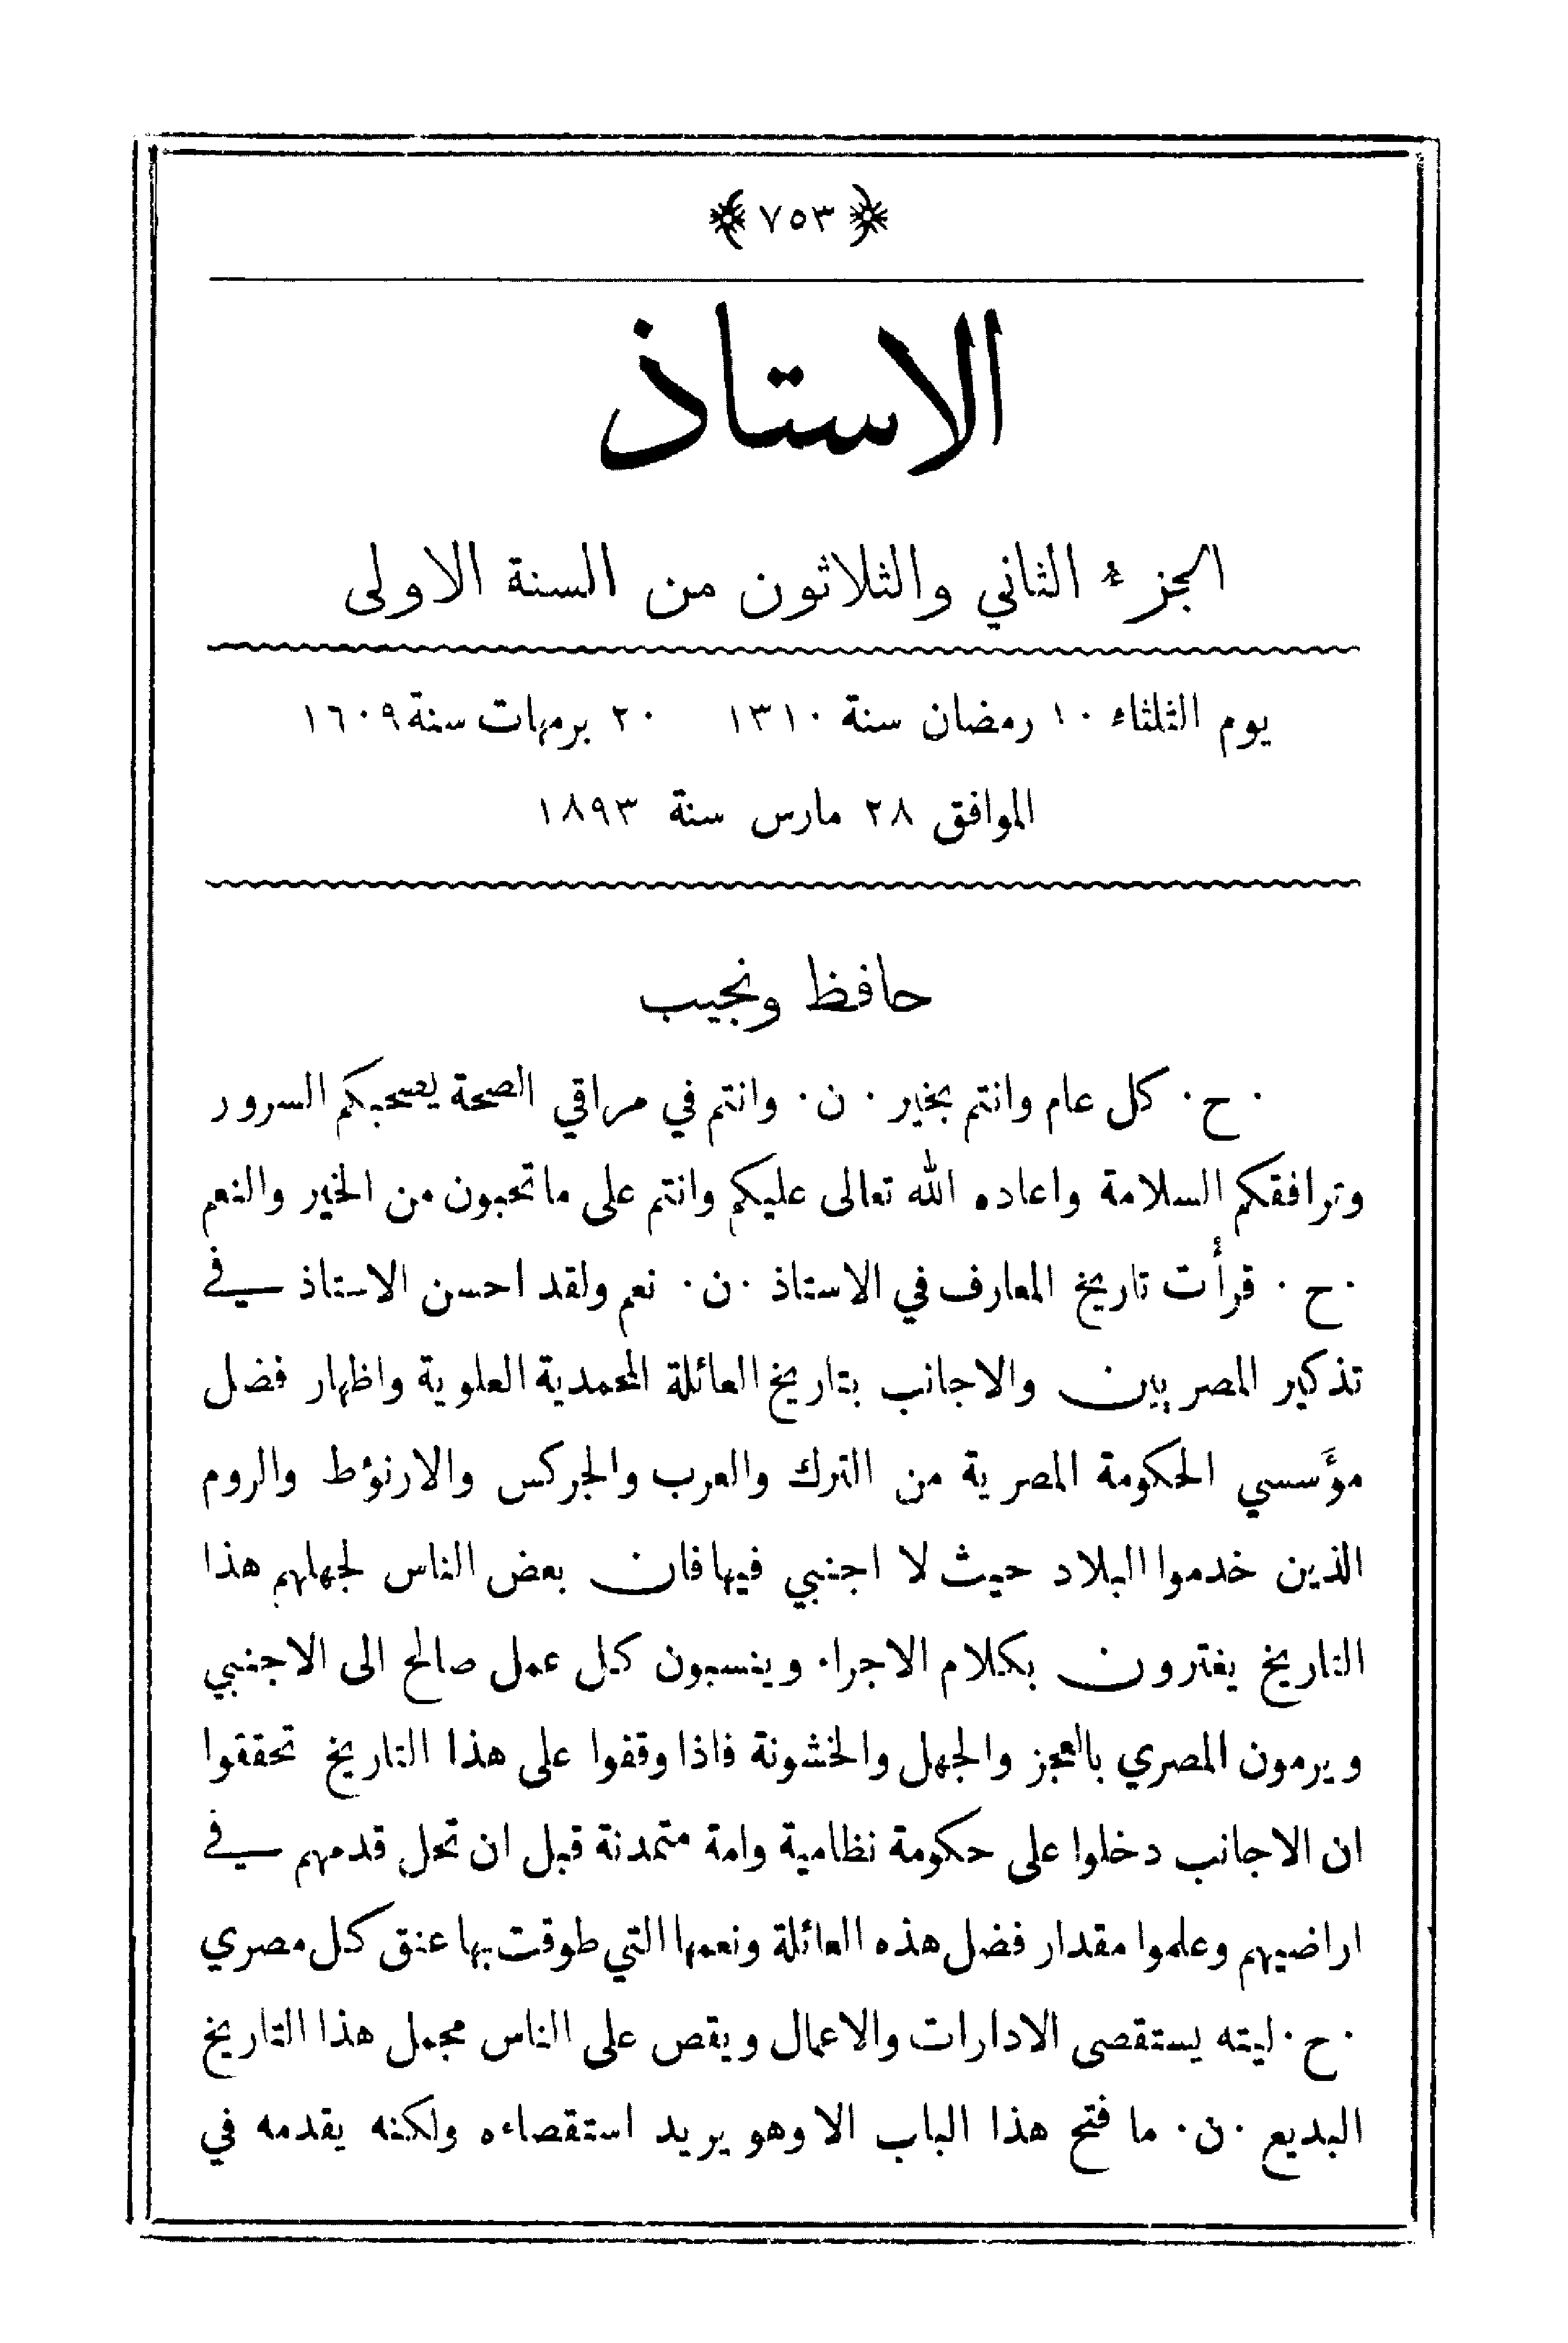 ﴿ ٧٥٣ ﴾
الاستاذ
الجزء الثاني والثلاثون من السنة الاولى
يوم الثلثاء ١٠ رمضان سنة ١٣١٠ ٢٠ برمهات سنة ١٦٠٩
الموافق ٢٨ مارس سنة ١٨٩٣
حافظ ونجيب
٠ح٠ كل عام وانتم بخير ٠ن٠ وانتم في مراقي الصحة يصحبكم السرور
وترافقكم السلامة واعاده الله تعالى عليكم وانتم على ما تحبون من الخير والنعم
٠ح٠ قرأت تاريخ المعارف في الاستاذ ٠ن٠ نعم ولقد احسن الاستاذ في
تذكير المصريين والاجانب بتاريخ العائلة المحمدية العلوية واظهار فضل
مؤسسي الحكومة المصرية من الترك والعرب والجركس والارنؤط والروم
الذين خدموا البلاد حيث لا اجنبي فيها فان بعض الناس لجهلهم هذا
التاريخ يغترون بكلام الاجراء وينسبون كل عمل صالح الى الاجنبي
ويرمون المصري بالعجز والجهل والخشونة فاذا وقفوا على هذا التاريخ تحققوا
ان الاجانب دخلوا على حكومة نظامية وامة متمدنة قبل ان تحل قدمهم في
اراضيهم وعلموا مقدار فضل هذه العائلة ونعمها التي طوقت بها عنق كل مصري
٠ح٠ ليته يستقصى الادارات والاعمال ويقص على الناس مجمل هذا التاريخ
البديع ٠ن٠ ما فتح هذا الباب الا وهو يريد استقصاءه ولكنه يقدمه في